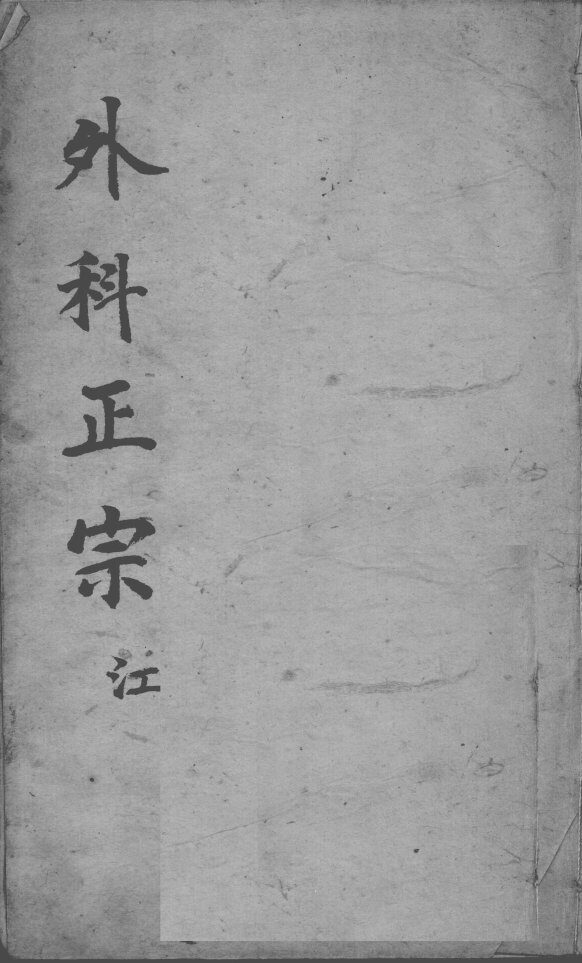 外科正宗
江